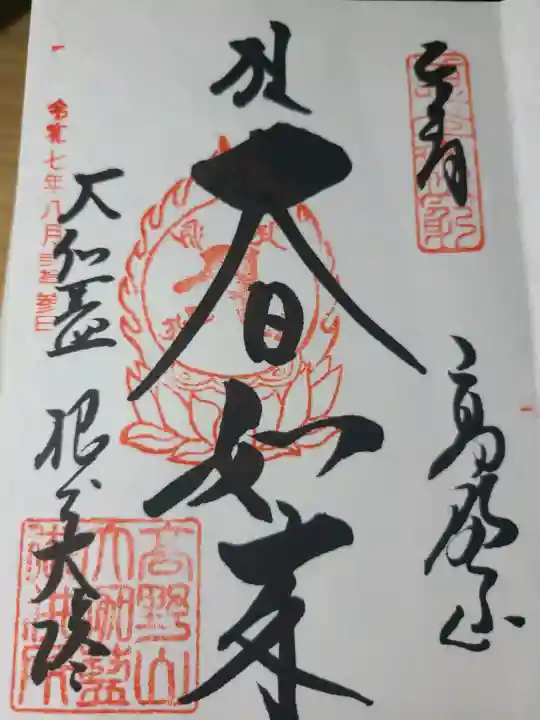 奉拝
高野山
大日如来
大伽藍 根本大塔
令和七年八月弐拾参日
高野山
大伽藍